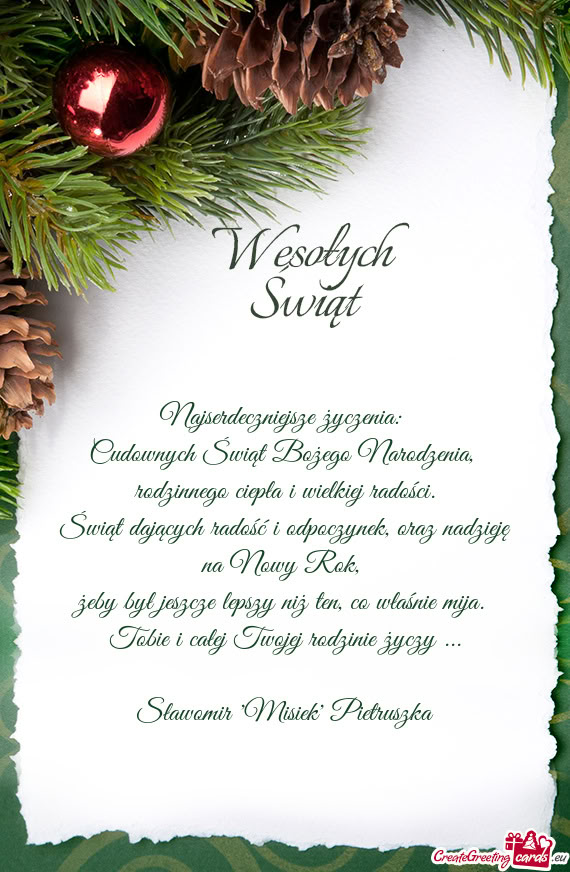 Wesołych
Świąt
Najserdeczniejsze życzenia:
Cudownych Świąt Bożego Narodzenia,
rodzinnego ciepła i wielkiej radości.
Świąt dających radość i odpoczynek, oraz nadzieję
na Nowy Rok,
żeby był jeszcze lepszy niż ten, co właśnie mija.
Tobie i całej Twojej rodzinie życzy ...
Sławomir 'Misiek' Pietruszka
CreateGreeting cards .eu